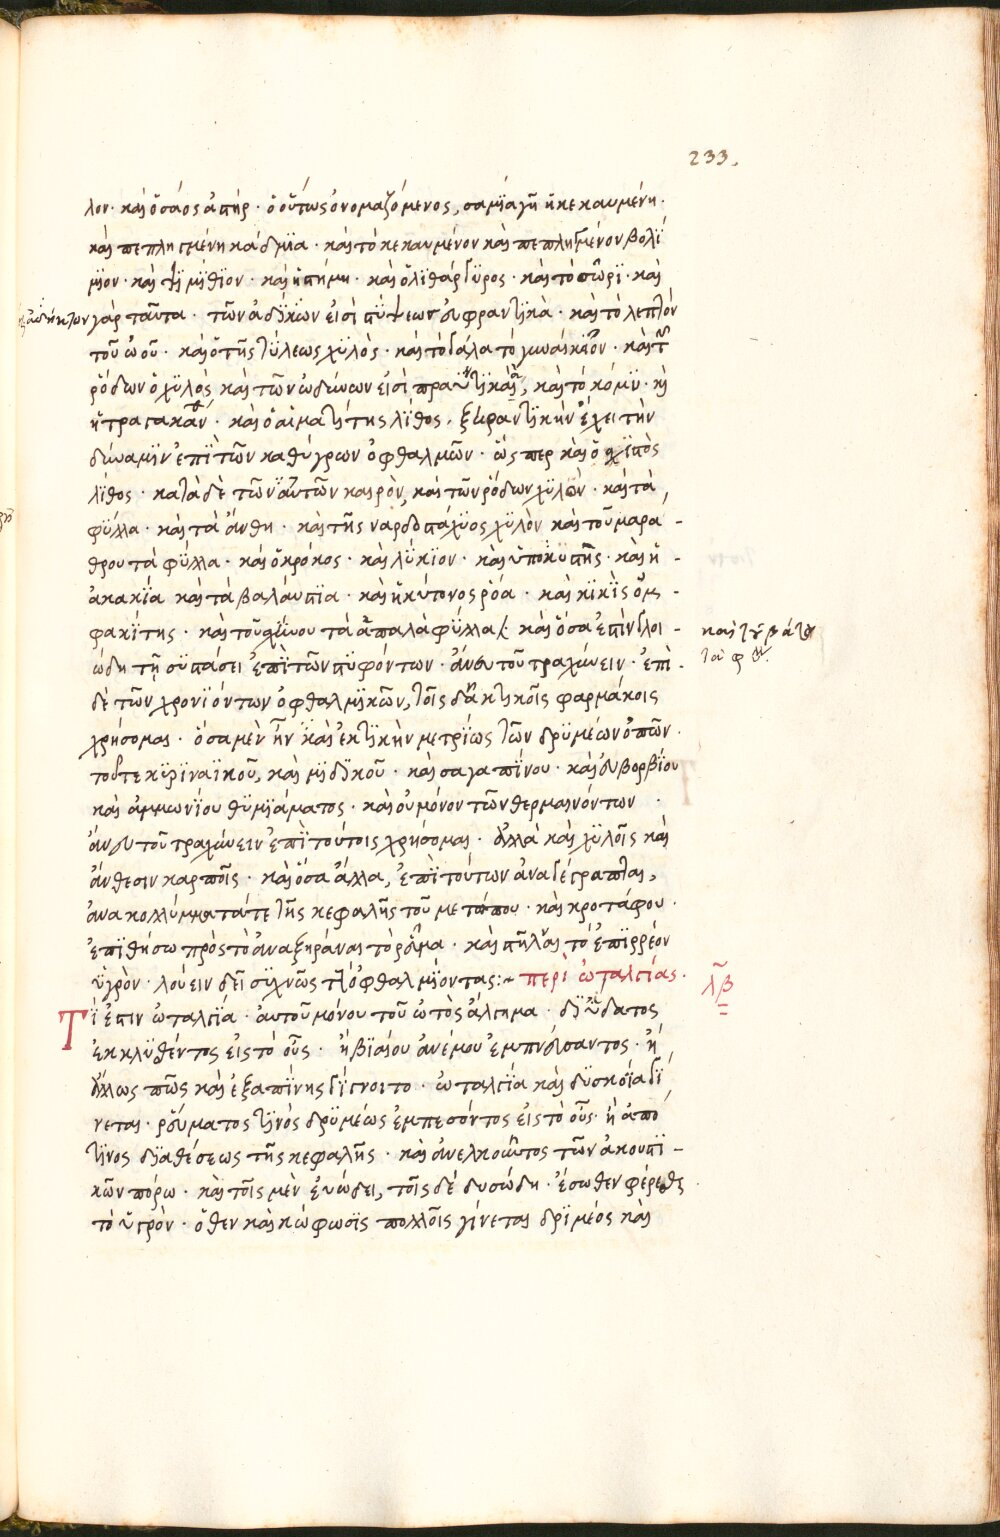 233.
λον· καὶ ὅσα ὁς ἀστὴρ · ὁ οὕτως ὀνομαζόμενος, σαμϊα γῆ ἡ κεκαυμένη·
καὶ πεπλησμένη καδμϊα · καὶ τὸ κεκαυμένον καὶ πεπλησμένον βολϊ
μϊον · καὶ ψϊμϊθϊον · καὶ ἡ στήμη · καὶ ὁ λϊθάργϋρος · καὶ τὸ σῶρϊ · καὶ
γὰρ ταῦτα · τῶν ἀδήκτων εἰσὶ στύψεως ἐμφρακτϊκὰ · καὶ τὸ λεπτὸν
τοῦ ὠοῦ · καὶ ὁ τῆς τϋλεως χϋλὸς · καὶ τὸ γάλα τὸ γυναικεῖον · καὶ τῶν
ῥόδων ὁ χϋλὸς καὶ τῶν ὠδϋνων εἰσὶ πραϋντϊκὰ, καὶ τὸ κόμϋ · καὶ
ἡ τραγακανθ · καὶ ὁ αἱματϊτης λϊθος · ξηραντϊκὴν ἔχει τὴν
δύναμϊν ἐπϊ τῶν καθύγρων ὀφθαλμῶν · ὥσπερ καὶ ὁ σχϊστὸς
λϊθος · κατὰ δὲ τῶν αὐτῶν καιρὸν, καὶ τῶν ῥόδων χϋλὸν · καὶ τὰ
φϋλλα · καὶ τὰ ἄνθη · καὶ τῆς ναρδοστάχϋος χϋλὸν καὶ τοῦ μαρα -
θρου τὰ φϋλλα · καὶ ὁ κρόκος · καὶ λϋκϊον · καὶ ὑποκϋστὶς · καὶ ἡ -
ἀκακϊα καὶ τὰ βαλαύστια · καὶ ἡ κύτινος ῥόα · καὶ κϊκὶς ὀμ -
φακϊτης · καὶ τοῦ σχίνου τὰ ἁπαλὰ φϋλλα · καὶ ὅσα ἐστὶν ὁμοι -
ώδη τῇ σϋστάσει ἐπϊ τῶν στϋφόντων · ἄνευ τοῦ τραχύνειν · ἐπὶ -
δὲ τῶν χρονϊόντων ὀφθαλμϊκῶν, τοῖς δακτϊκοῖς φαρμάκοις
χρήσομαι · ὅσα μὲν ἦν καὶ ἑκτϊκὴν μετρϊως τῶν δρϋμέων ὀπῶν ·
τοῦ τε κϋρϊναϊκοῦ, καὶ μϊδϊκοῦ · καὶ σαγαπίνου · καὶ εὐβορβϊου
καὶ ἀμμωνίου θϋμϊάματος · καὶ οὐ μόνον τῶν θερμαινόντων ·
ἄνευ τοῦ τραχύνειν ἐπϊ τούτοις χρήσομαι · ἀλλὰ καὶ χϋλοῖς καὶ
ἄνθεσιν καρποῖς · καὶ ὅσα ἄλλα, ἐπϊ τούτων ἀναγέγραπται,
ἀνακολλύμματά τε τῆς κεφαλῆς τοῦ μετώπου · καὶ κροτάφου ·
ἐπϊθήσω πρὸς τὸ ἀναξηρᾶναι τὸ ῥεῦμα · καὶ στῆλαι τὸ ἐπϊρρέον
ὑγρὸν · λούειν δεῖ συχνῶς τοὺς ὀφθαλμϊόντας:~ περὶ ὠταλγίας·
Τϊ ἐστιν ὠταλγϊα · αὐτοῦ μόνου τοῦ ὠτὸς ἄλγημα · δϊ ὕδατος
ἐκκλϋθέντος εἰς τὸ οὖς · ἢ βϊαίου ἀνέμου ἐμπνεύσαντος · ἢ
ἄλλως πῶς καὶ ἐξαπϊνης γϊγνοιτο · ὠταλγϊα καὶ δϋσκοΐα γϊ
νεται · ῥεύματος τϊνὸς δρϋμέως ἐμπεσόντος εἰς τὸ οὖς· ἢ ἀπό
τϊνος δϊαθέσεως τῆς κεφαλῆς · καὶ ἀνελκοῦντος τῶν ἀκουστϊ -
κῶν πόρω · καὶ τοῖς μὲν εὐώδει, τοῖς δὲ δυσώδη · ἔσωθεν φέρεσθαι
τὸ ὑγρὸν · ὅθεν καὶ κώφωσϊς πολλοῖς γίνεται δρϊμέος καὶ
ἀδήκτων
καὶ τῆς βάτου
τὰ φύλλα
λβ